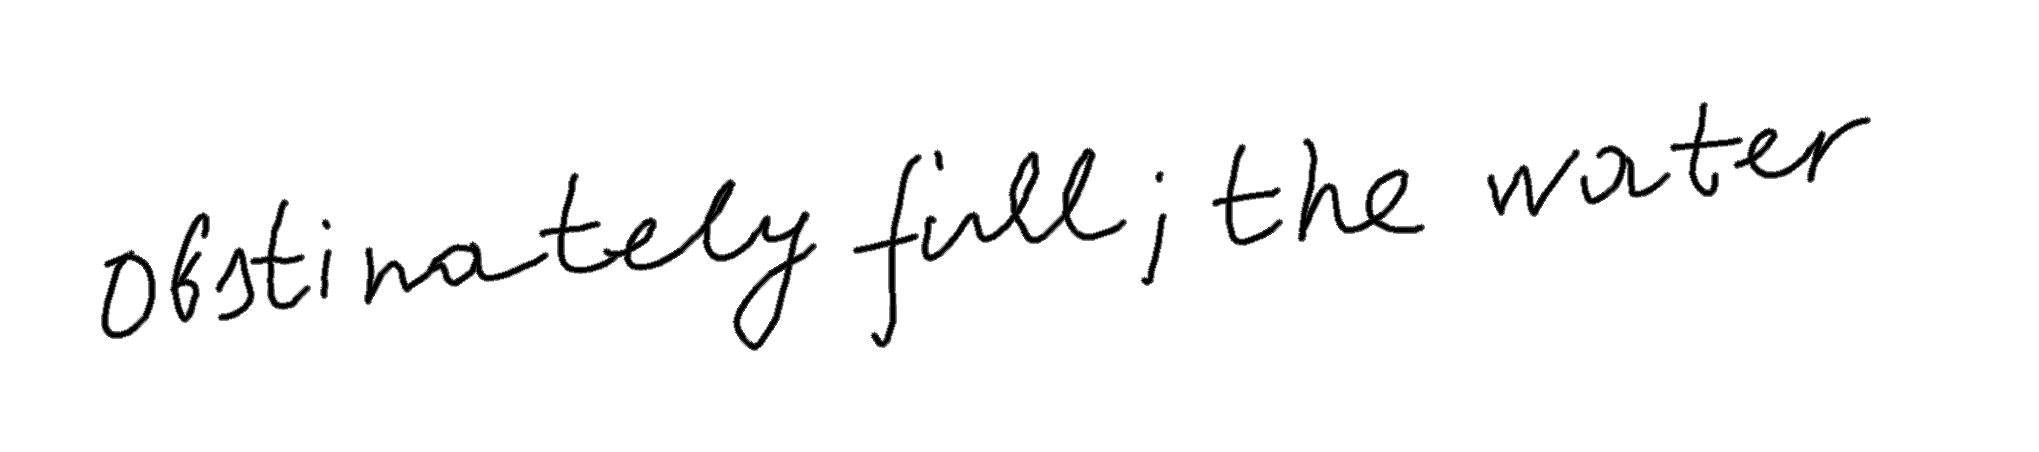 obstinately full; the water